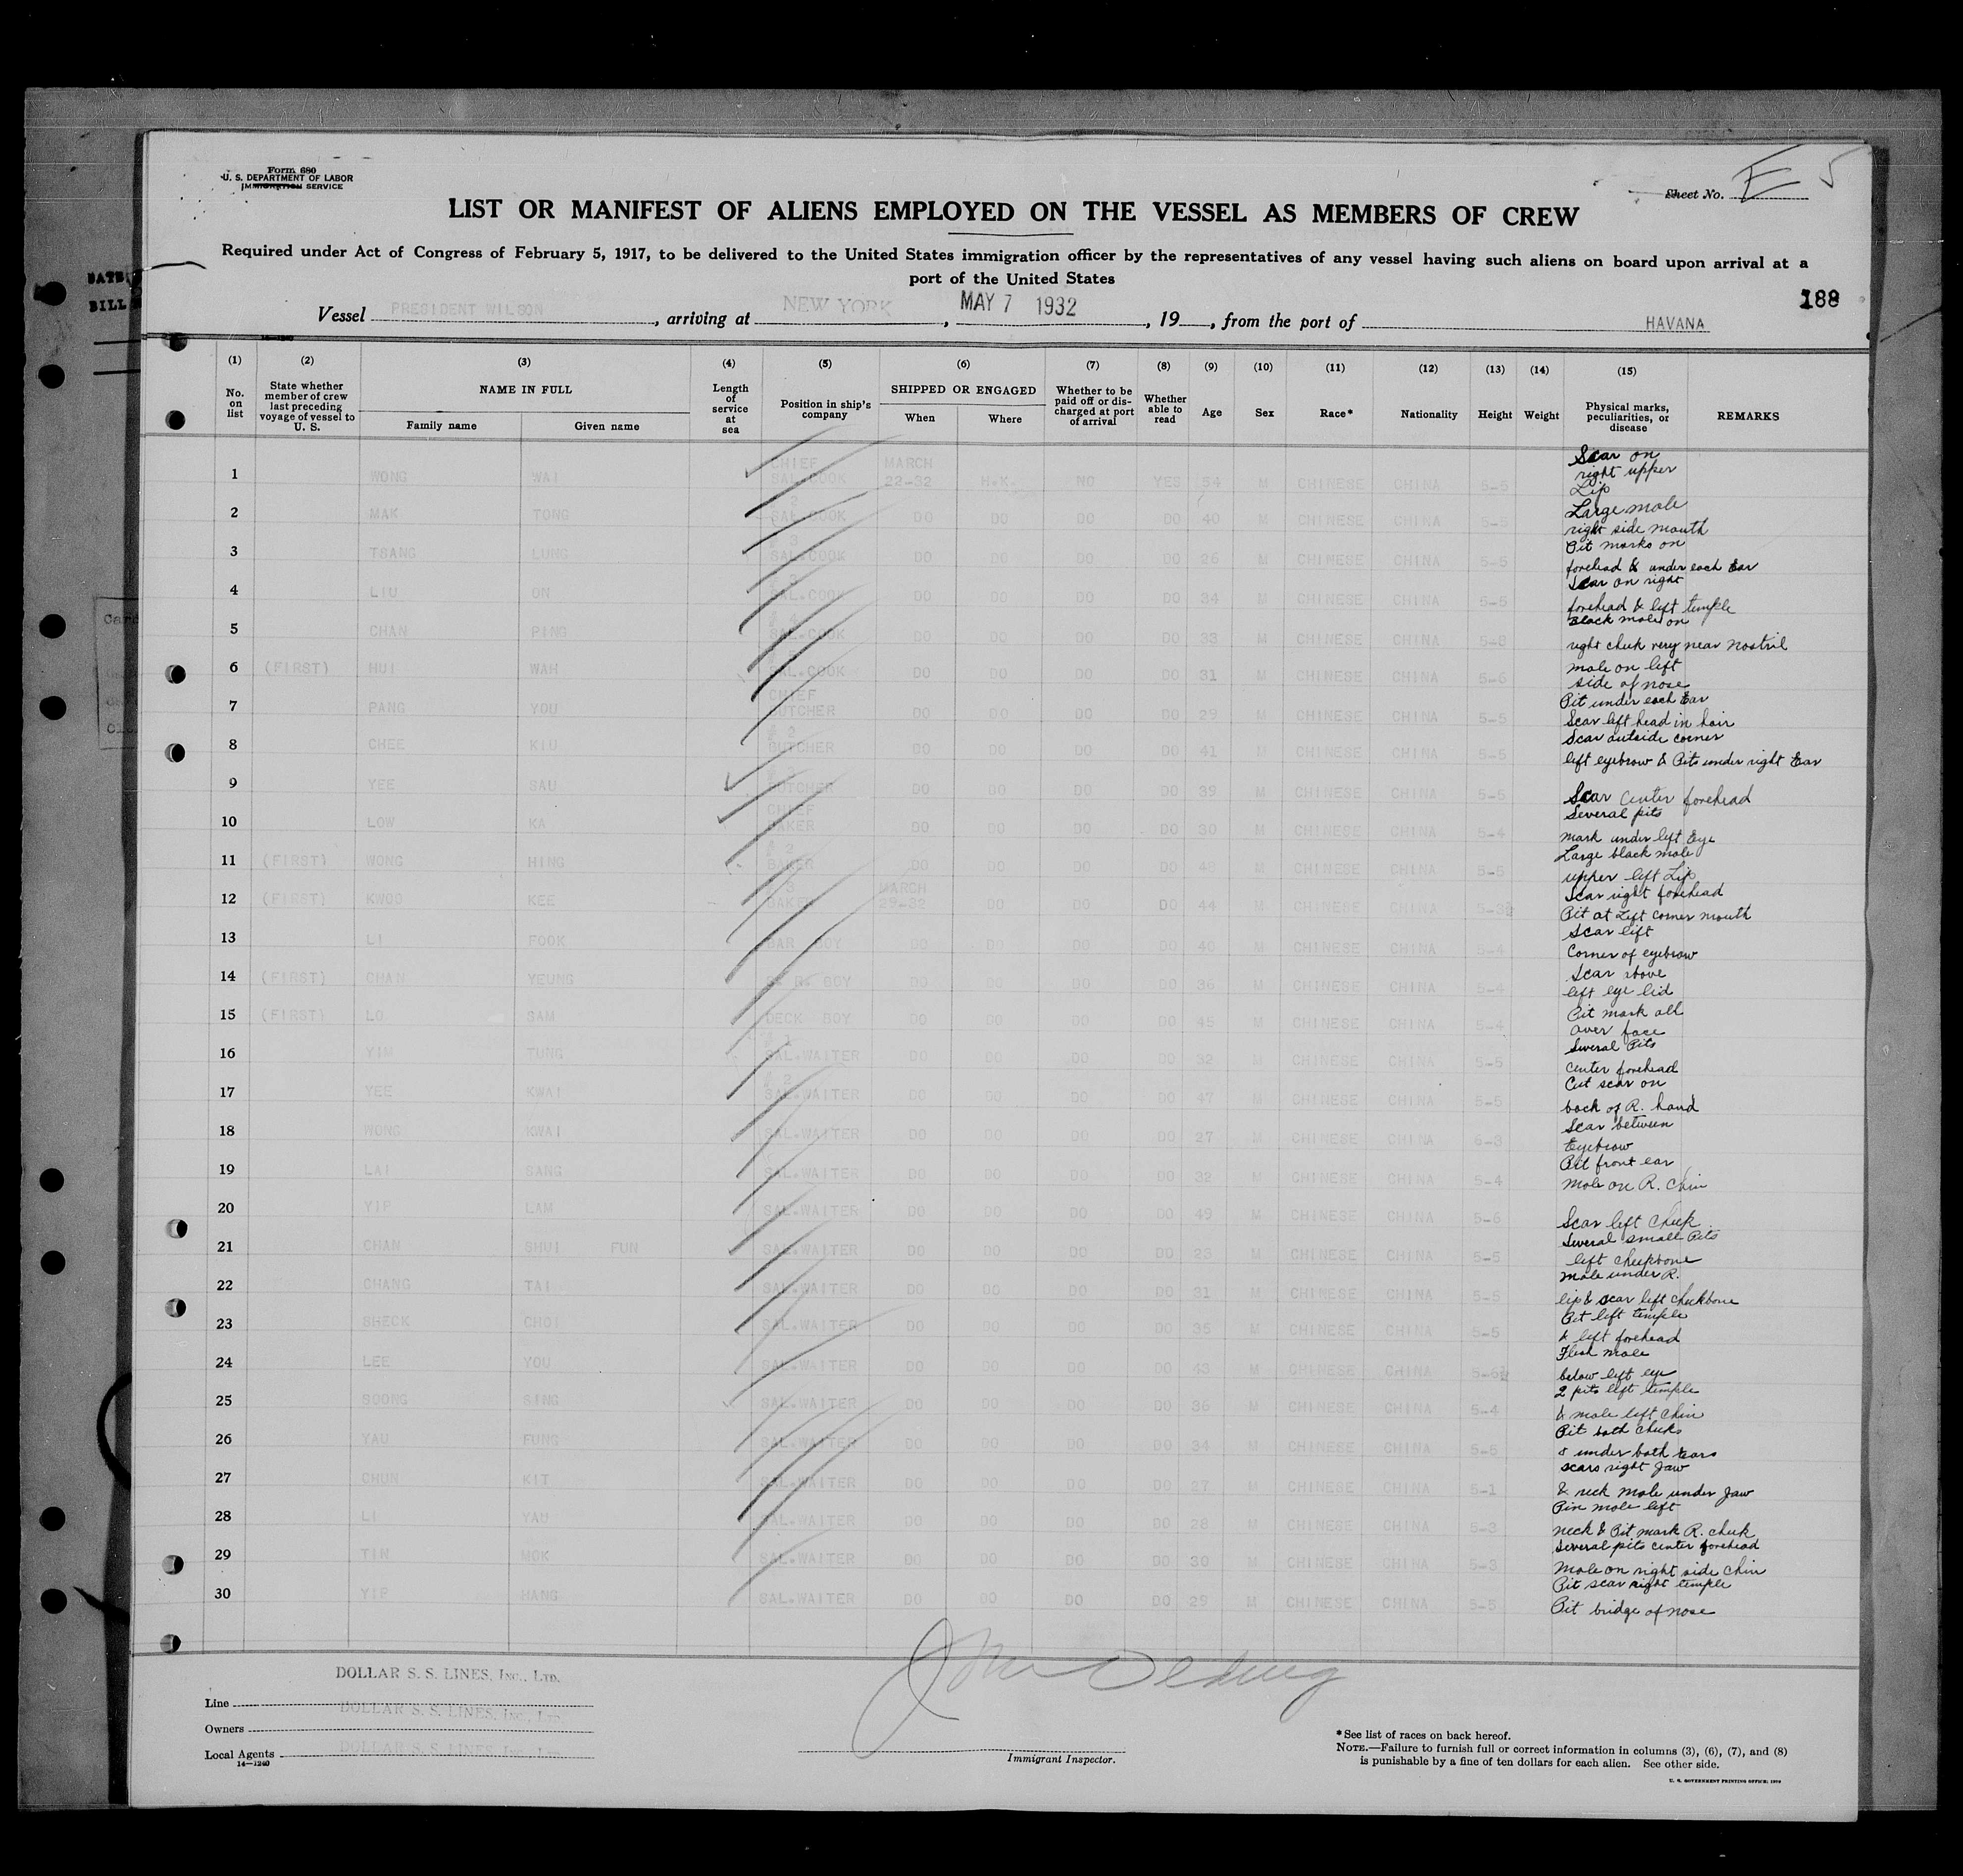 Form 680
U. S. DEPARTMENT OF LABOR
IMMIGRATION SERVICE
Sheet No. E 5
LIST OR MANIFEST OF ALIENS EMPLOYED ON THE VESSEL AS MEMBERS OF CREW
Required under Act of Congress of February 5, 1917, to be delivered to the United States immigration officer by the representatives of any vessel having such aliens on board upon arrival at a
port of the United States
188
Vessel PRESIDENT WILSON, arriving at NEW YORK, MAY 7 1932, 19, from the port of HAVANA
(1) (2) (3) (4) (5) (6) (7) (8) (9) (10) (11) (12) (13) (14) (15)
No. on list State whether member of crew last preceding voyage of vessel to U. S. NAME IN FULL Family name Given name Length of service at sea Position in ship's company SHIPPED OR ENGAGED When Where Whether to be paid off or discharged at port of arrival Whether able to read Age Sex Race* Nationality Height Weight Physical marks, peculiarities, or disease REMARKS
1 WONG WAI CHIEF SAL.COOK MARCH 22-32 H.K. NO YES 54 M CHINESE CHINA 5-5 Scar on right upper Lip
2 MAK TONG 2 SAL.COOK DO DO DO DO 40 M CHINESE CHINA 5-5 Large mole right side mouth
3 TSANG LUNG 3 SAL.COOK DO DO DO DO 26 M CHINESE CHINA 5-5 Pit marks on forehead & under each Ear
4 LIU ON SAL.COOK DO DO DO DO 34 M CHINESE CHINA 5-5 Scar on right forehead & left temple
5 CHAN PING SAL.COOK DO DO DO DO 33 M CHINESE CHINA 5-8 Black mole on right cheek very near nostril
6 (FIRST) HUI WAH SAL.COOK DO DO DO DO 31 M CHINESE CHINA 5-6 mole on left side of nose
7 PANG YOU CHIEF BUTCHER DO DO DO DO 29 M CHINESE CHINA 5-5 Pit under each Ear Scar left head in hair
8 CHEE KIU 2 BUTCHER DO DO DO DO 41 M CHINESE CHINA 5-5 Scar outside corner left eyebrow & Pits under right Ear
9 YEE SAU BUTCHER DO DO DO DO 39 M CHINESE CHINA 5-5 Scar center forehead
10 LOW KA CHIEF BAKER DO DO DO DO 30 M CHINESE CHINA 5-4 Several pits mark under left Eye
11 (FIRST) WONG HING 2 BAKER DO DO DO DO 48 M CHINESE CHINA 5-5 Large black mole upper left Lip
12 (FIRST) KWOO KEE 3 BAKER MARCH 29-32 DO DO DO 44 M CHINESE CHINA 5-3½ Scar right forehead Pit at Left corner mouth
13 LI FOOK BAR BOY DO DO DO DO 40 M CHINESE CHINA 5-4 Scar left Corner of eyebrow
14 (FIRST) CHAN YEUNG S. R. BOY DO DO DO DO 36 M CHINESE CHINA 5-4 Scar above left eye lid
15 (FIRST) LO SAM DECK BOY DO DO DO DO 45 M CHINESE CHINA 5-4 Pit mark all over face
16 YIM TUNG SAL.WAITER DO DO DO DO 32 M CHINESE CHINA 5-5 Several Pits center forehead
17 YEE KWAI 2 SAL.WAITER DO DO DO DO 47 M CHINESE CHINA 5-5 Cut scar on back of R. hand
18 WONG KWAI SAL.WAITER DO DO DO DO 27 M CHINESE CHINA 5-3 Scar between Eyebrow
19 LAI SANG SAL.WAITER DO DO DO DO 32 M CHINESE CHINA 5-4 Pit front ear mole on R. Chin
20 YIP LAM SAL.WAITER DO DO DO DO 49 M CHINESE CHINA 5-6 Scar left Cheek
21 CHAN SHUI FUN SAL.WAITER DO DO DO DO 23 M CHINESE CHINA 5-5 Several small Pits left cheekbone
22 CHANG TAI SAL.WAITER DO DO DO DO 31 M CHINESE CHINA 5-5 Mole under R. lip & scar left cheekbone
23 SHECK CHOI SAL.WAITER DO DO DO DO 35 M CHINESE CHINA 5-5 Pit left temple & left forehead
24 LEE YOU SAL.WAITER DO DO DO DO 43 M CHINESE CHINA 5-6½ Flesh mole below left eye
25 SOONG SING SAL.WAITER DO DO DO DO 36 M CHINESE CHINA 5-4 2 pits left temple & mole left Chin
26 YAU FUNG SAL.WAITER DO DO DO DO 34 M CHINESE CHINA 5-6 Pit both Cheeks & under both Ears
27 CHUN KIT SAL.WAITER DO DO DO DO 27 M CHINESE CHINA 5-1 scars right Jaw & neck mole under Jaw
28 LI YAU SAL.WAITER DO DO DO DO 28 M CHINESE CHINA 5-3 Pin mole left neck & Pit mark R. cheek
29 TIN MOK SAL.WAITER DO DO DO DO 30 M CHINESE CHINA 5-3 Several pits center forehead Mole on right side Chin
30 YIP HANG SAL.WAITER DO DO DO DO 29 M CHINESE CHINA 5-5 Pit scar right temple Pit bridge of nose
DOLLAR S. S. LINES, INC., LTD.
Line
DOLLAR S. S. LINES, INC., LTD.
Owners
DOLLAR S. S. LINES, INC., LTD.
Local Agents
14—1240
Immigrant Inspector.
*See list of races on back hereof.
NOTE.—Failure to furnish full or correct information in columns (3), (6), (7), and (8)
is punishable by a fine of ten dollars for each alien. See other side.
U. S. GOVERNMENT PRINTING OFFICE: 1929
DATE
BILL